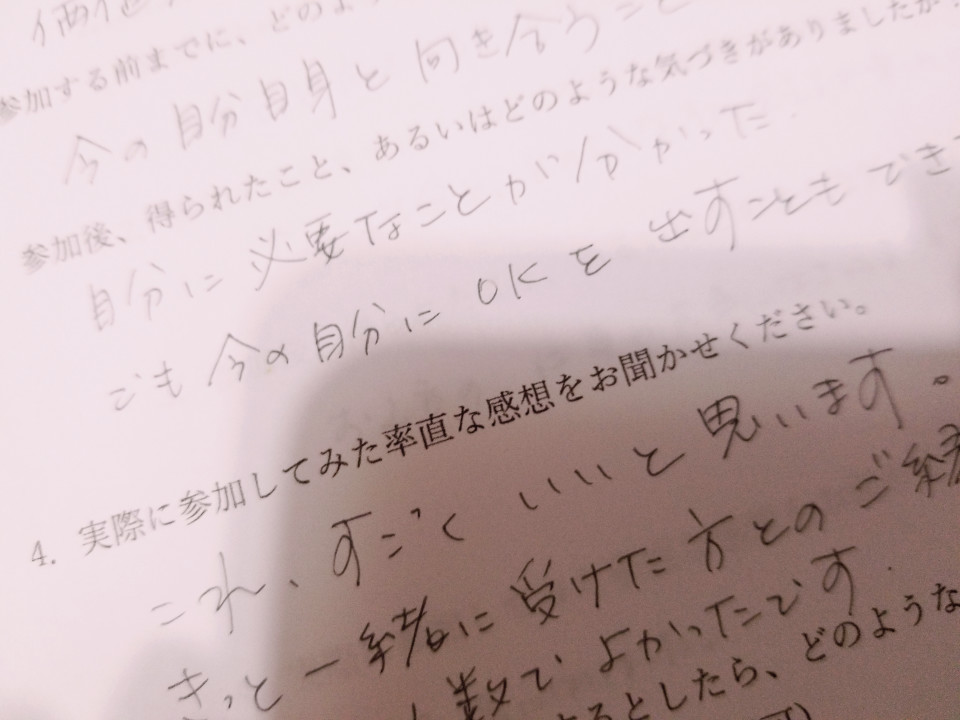 参加する前までに、どのよ
今の自分自身と向き合うこと
参加後、得られたこと、あるいはどのような気づきがありましたか
自分に必要なことが分かった
でも今の自分にOKを出すこともでき
4. 実際に参加してみた率直な感想をお聞かせください。
これ、すごくいいと思います。
きっと一緒に受けた方とのご縁
数でよかったです.
るとしたら、どのような